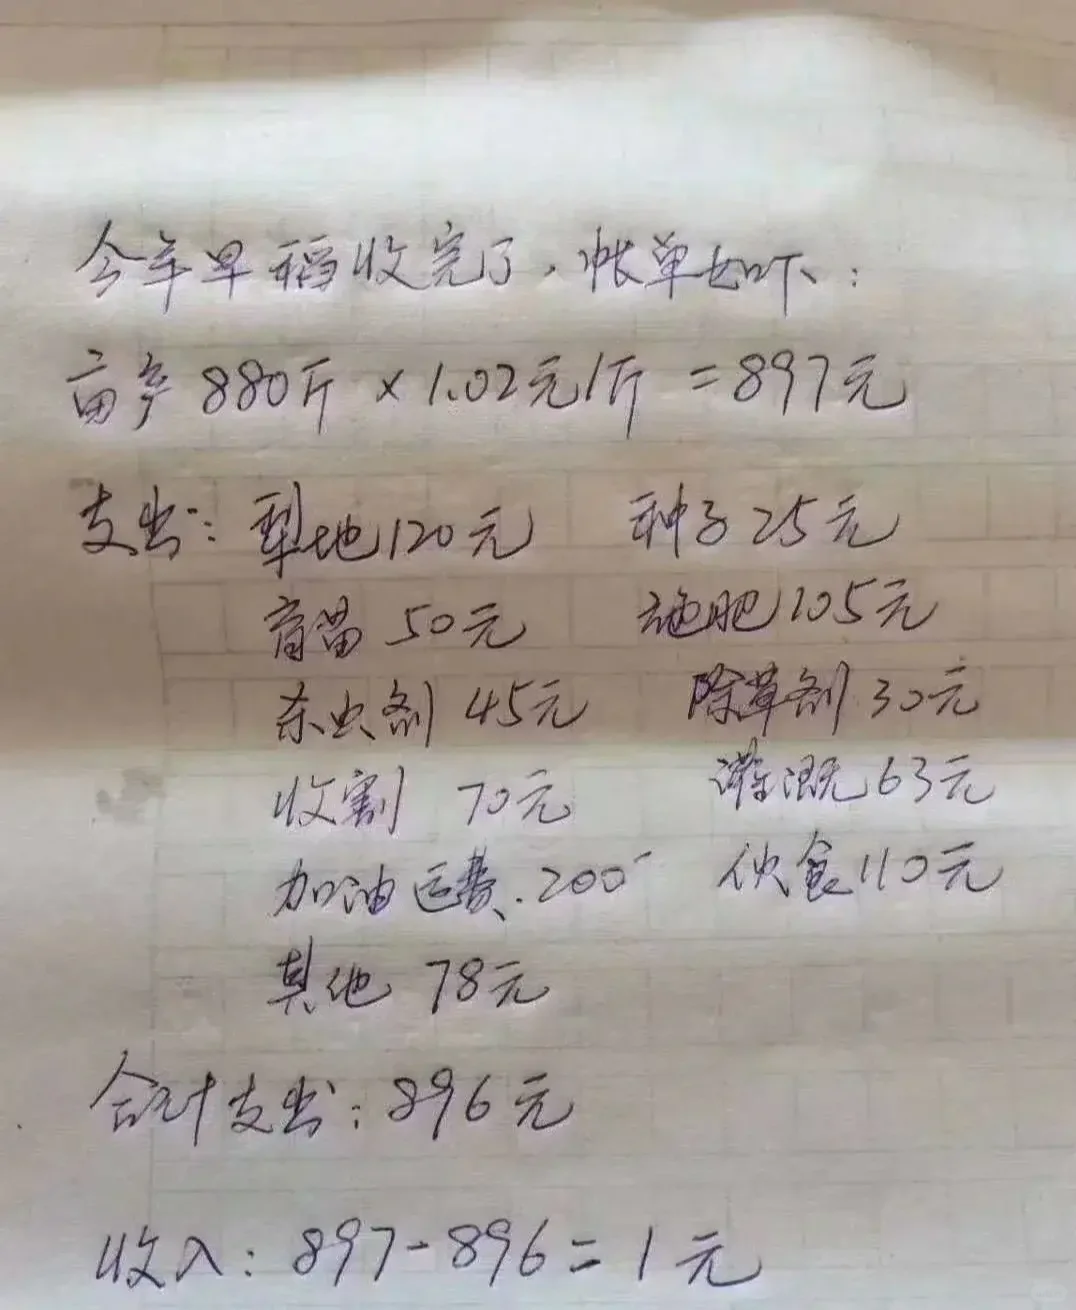 今年早稻收完了，帐单如下：
亩产 880斤 × 1.02元/斤 = 897元
支出：犁地120元 种子25元
育苗 50元 施肥105元
杀虫剂 45元 除草剂 30元
收割 70元 灌溉63元
加油运费.200 伙食110元
其他 78元
合计支出：896元
收入：897-896=1元